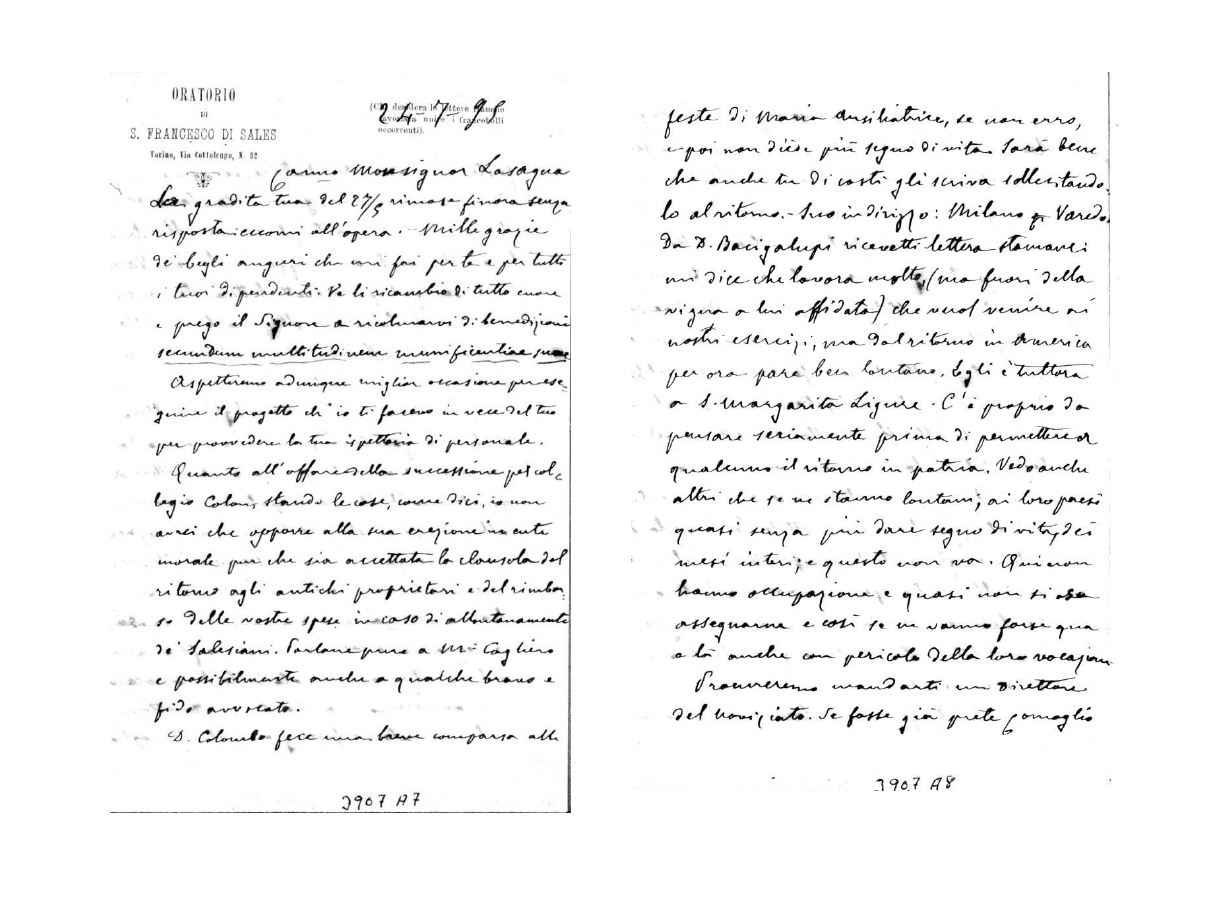 ORATORIO
DI
S. FRANCESCO DI SALES
Torino, Via Cottolengo, N. 32
(Chi desidera le lettere franche
favorisca unire i francobolli
occorrenti).
24-7-95
Carmo Monsignor Lasagna
La gradita tua del 27/5 rimase finora senza
risposta: eccomi all'opera. - Mille grazie
dei begli auguri che mi fai per te e per tutti
i tuoi dipendenti. Ve li ricambio di tutto cuore
e prego il Signore a ricolmarvi di benedizioni
secundum multitudinem munificentiae suae
Aspetteremo adunque miglior occasione per ese-
guire il progetto ch'io ti facevo in vece del tuo
per provvedere la tua ispettoria di personale.
Quanto all'affare della successione pel col-
legio Colon, stando le cose, come dici, io non
avrei che opporre alla sua erezione in ente
morale pur che sia accettata la clausola del
ritorno agli antichi proprietari e del rimbor-
so delle vostre spese in caso di allontanamento
de' Salesiani. Parlane pure a Mr Cagliero
e possibilmente anche a qualche bravo e
fido avvocato.
D. Colombo fece una breve comparsa alle
3907 A7
feste di Maria Ausiliatrice, se non erro,
e poi non diede più segno di vita. Sarà bene
che anche tu di costì gli scriva sollecitando-
lo al ritorno. - Suo indirizzo: Milano Varedo.
Da D. Bacigalupi ricevetti lettera stamane:
mi dice che lavora molto, (ma fuori della
vigna a lui affidata) che vuol venire ai
nostri esercizi, ma dal ritorno in America
per ora pare ben lontano. Egli è tuttora
a S. Margarita Ligure. - C'è proprio da
pensare seriamente prima di permettere a
qualcuno il ritorno in patria. Vedo anche
altri che se ne stanno lontani, ai loro paesi
quasi senza più dare segno di vita, dei
mesi interi; e questo non va. Qui non
hanno occupazione e quasi non si osa
assegnarne e così se ne vanno forse qua
e là anche con pericolo della loro vocazione
Procureremo mandarti un direttore
del noviziato. Se fosse già prete Comoglio
3907 A8